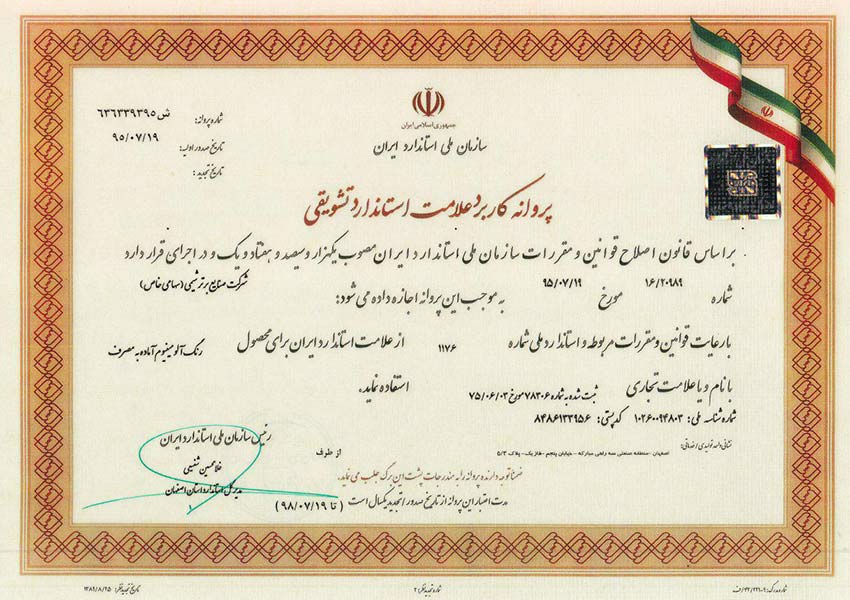 جمهوری اسلامی ایران
سازمان ملی استاندارد ایران
شماره پروانه: ش۶۳۶۳۳۹۳۹۵
تاریخ صدور اولیه: ۹۵/۰۷/۱۹
تاریخ تجدید:
پروانه کاربرد علامت استاندارد تشویقی
براساس قانون اصلاح قوانین و مقررات سازمان ملی استاندارد ایران مصوب یکهزار و سیصد و هفتاد و یک و در اجرای قرار دارد
شماره ۱۶/۲۰۹۸۹ مورخ ۹۵/۰۷/۱۹ به موجب این پروانه اجازه داده می شود: شرکت صنایع برتر شیمی (سهامی خاص)
بارعایت قوانین و مقررات مربوطه و استاندارد ملی شماره ۱۱۷۶ از علامت استاندارد ایران برای محصول رنگ آلومینیوم آماده به مصرف
با نام و یا علامت تجاری ثبت شده به شماره ۷۸۳۰۶ مورخ ۷۵/۰۶/۰۳ استفاده نماید.
شماره شناسه ملی: ۱۰۲۶۰۰۹۴۸۰۳ کدپستی: ۸۴۸۶۱۳۳۹۵۶
نشانی واحد تولیدی/خدماتی: اصفهان - منطقه صنعتی سه راهی مبارکه - خیابان پنجم - فاز یک - پلاک ۵/۳
ضمنا توجه دارنده پروانه را به مندرجات پشت این برگ جلب می نماید.
مدت اعتبار این پروانه از تاریخ صدور / تجدید یکسال است (تا ۹۸/۰۷/۱۹)
از طرف
رئیس سازمان ملی استاندارد ایران
غلامحسین شفیعی
مدیر کل استاندارد استان اصفهان
شماره مدرک: ف/۳۲/۲۲۹۰۹
شماره تجدید نظر: ۲
تاریخ تجدید نظر: ۱۳۸۹/۸/۲۵